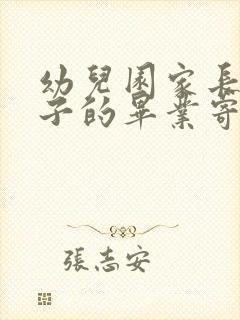 幼兒園家長
子的畢業寄
張志安